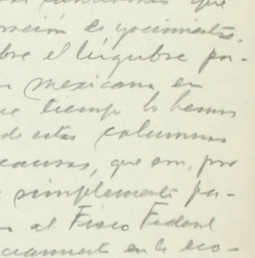 que
ración de yacimientos,
bre el lúgubre por-
mexicana en
tiempo lo hemos
de estas columnas
causas, que son, por
simplemente pa-
al Fisco Federal
en la eco-